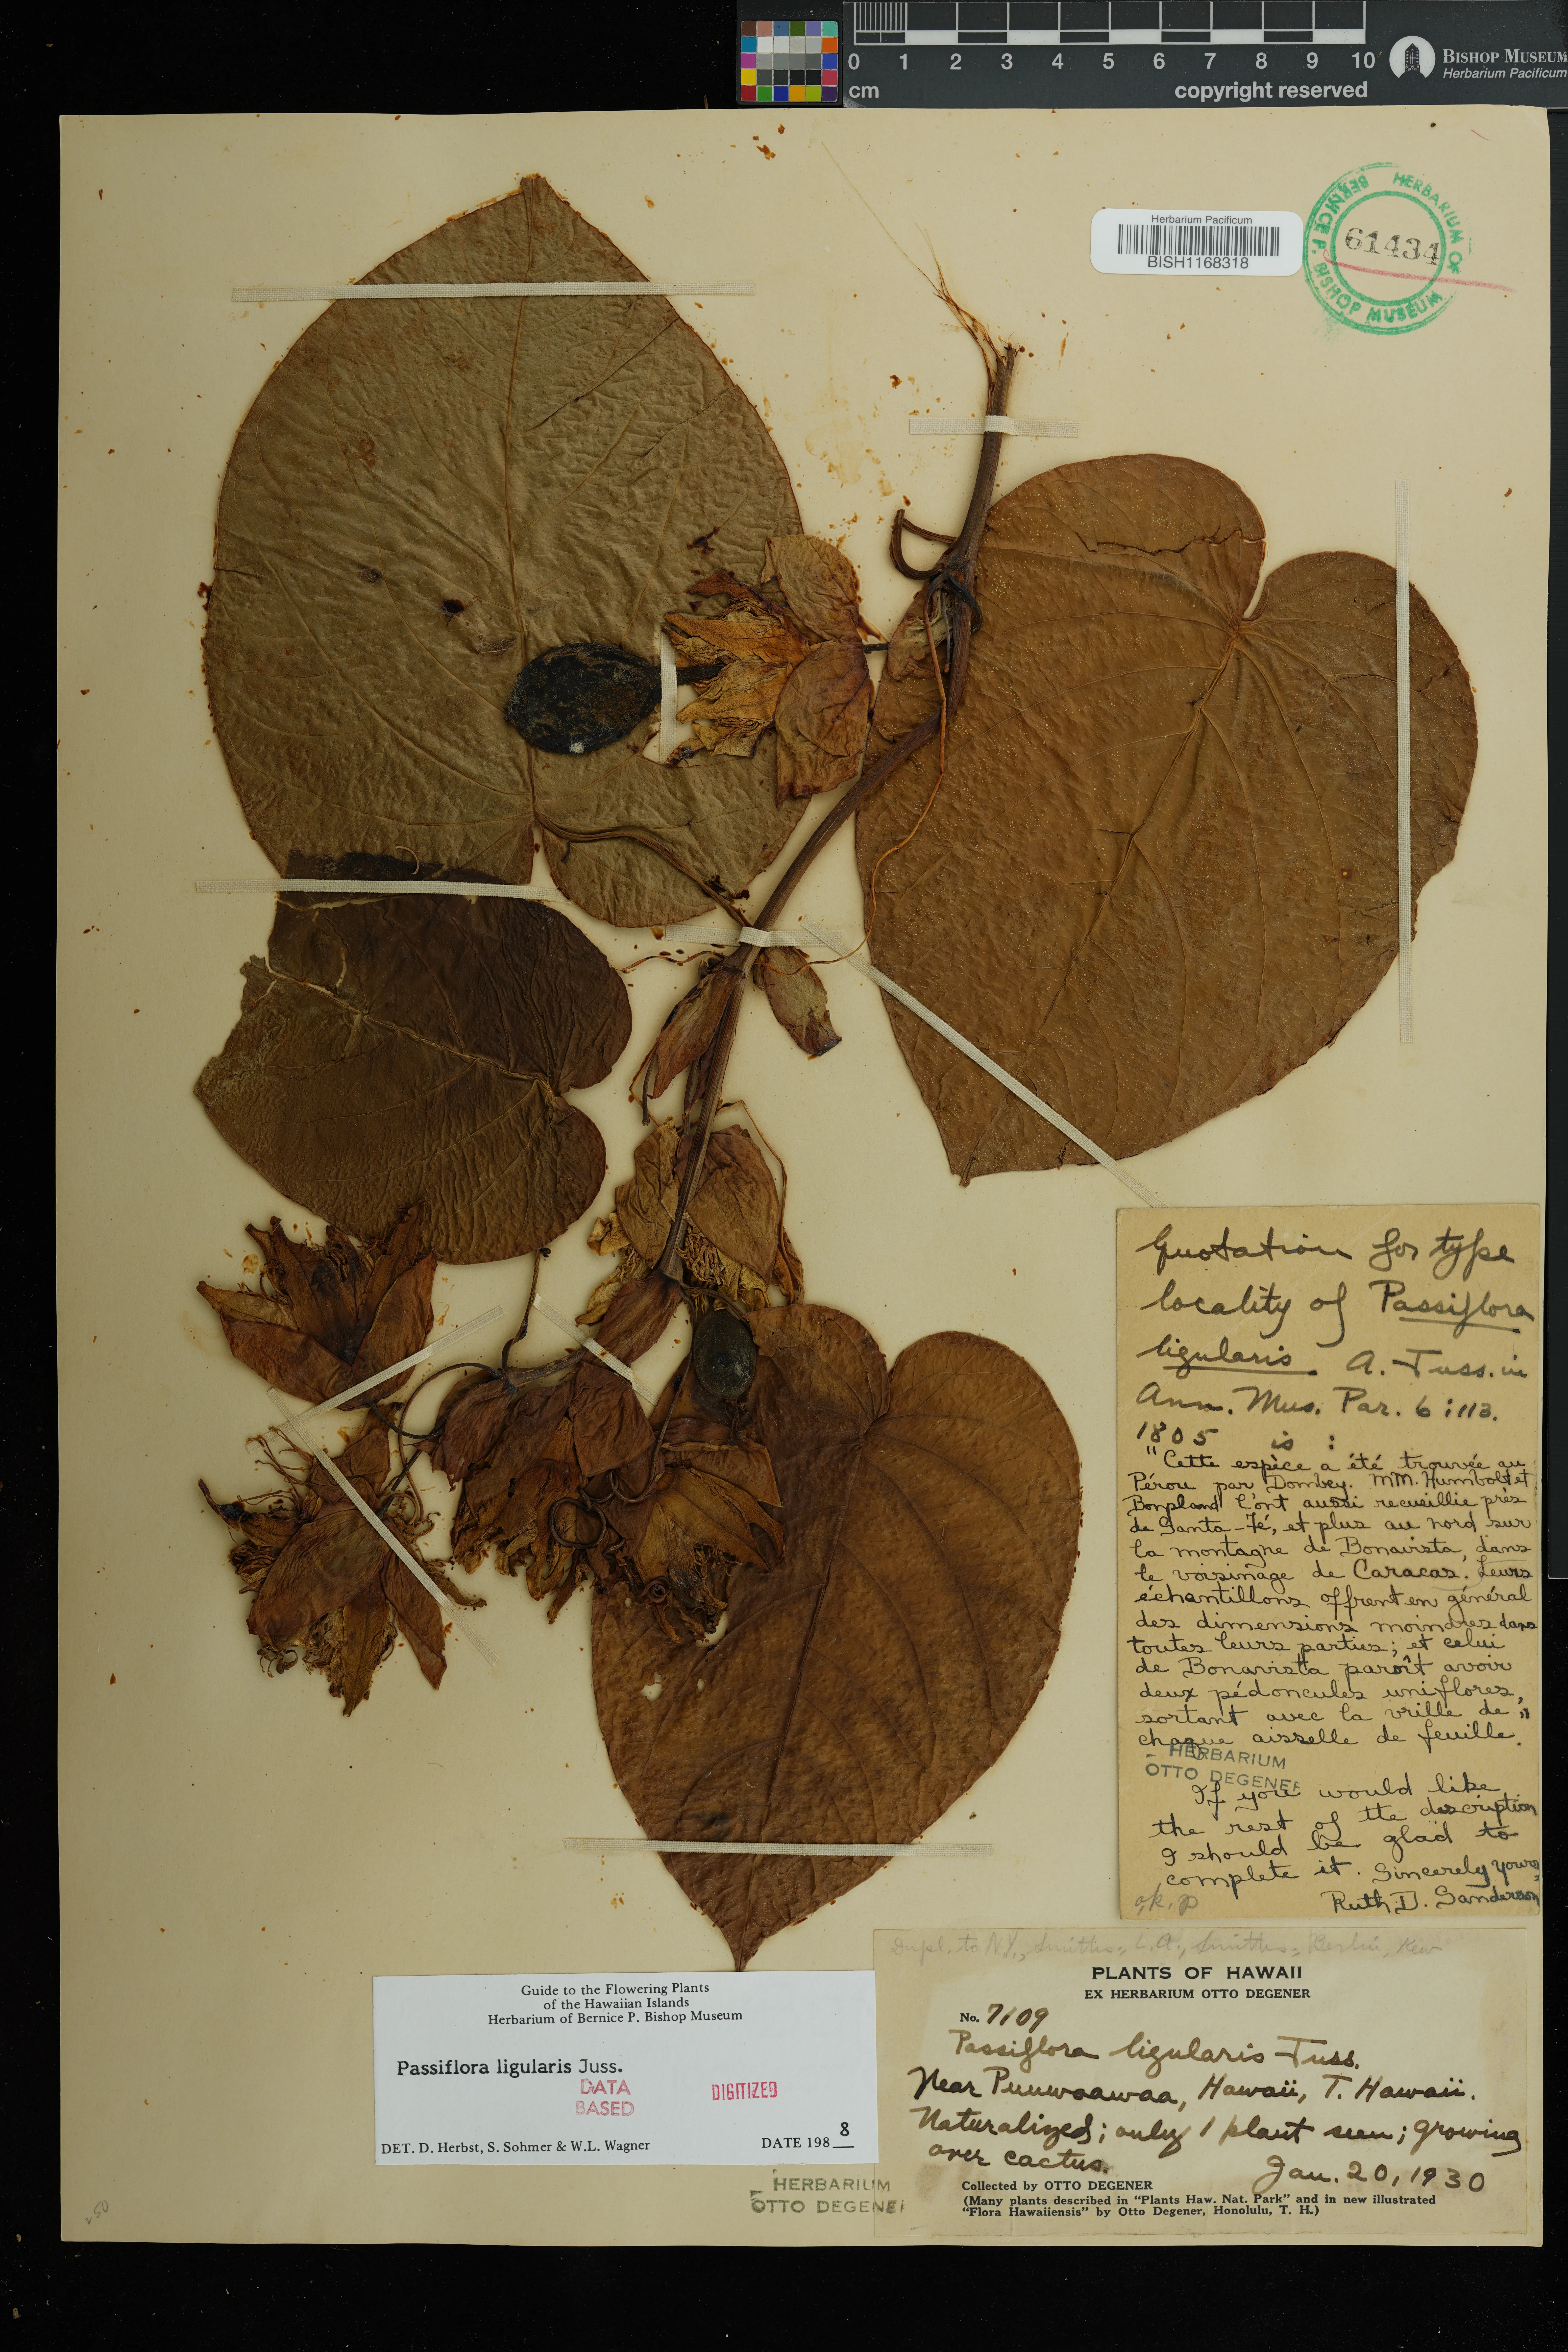 0 1 2 3 4 5 6 7 8 9 10
cm
copyright reserved
BISHOP MUSEUM
Herbarium Pacificum
Herbarium Pacificum
BISH1168318
HERBARIUM OF
BERNICE P. BISHOP MUSEUM
61434
Quotation for type
locality of Passiflora
ligularis A. Juss. in
Ann. Mus. Par. 6:113.
1805 is :
"Cette espèce a été trouvée au
Pérou par Dombey. MM. Humbolt et
Bonpland l'ont aussi recueillie près
de Santa-Fé, et plus au nord sur
la montagne de Bonavista, dans
le voisinage de Caracas. Leurs
échantillons offrent en général
des dimensions moindres dans
toutes leurs parties; et celui
de Bonavista paroît avoir
deux pédoncules uniflores,
sortant avec la vrille de
chaque aisselle de feuille."
HERBARIUM
OTTO DEGENER
If you would like
the rest of the description
I should be glad to
complete it. Sincerely yours,
Ruth D. Sanderson
Dupl. to NY,
PLANTS OF HAWAII
EX HERBARIUM OTTO DEGENER
No. 7109
Passiflora ligularis Juss.
Near Puuwaawaa, Hawaii, T. Hawaii.
Naturalized; only 1 plant seen; growing
over cactus.
Jan. 20, 1930
Collected by OTTO DEGENER
(Many plants described in "Plants Haw. Nat. Park" and in new illustrated
"Flora Hawaiiensis" by Otto Degener, Honolulu, T. H.)
Guide to the Flowering Plants
of the Hawaiian Islands
Herbarium of Bernice P. Bishop Museum
Passiflora ligularis Juss.
DATA
BASED
DIGITIZED
DET. D. Herbst, S. Sohmer & W.L. Wagner
DATE 198 8
HERBARIUM
OTTO DEGENER